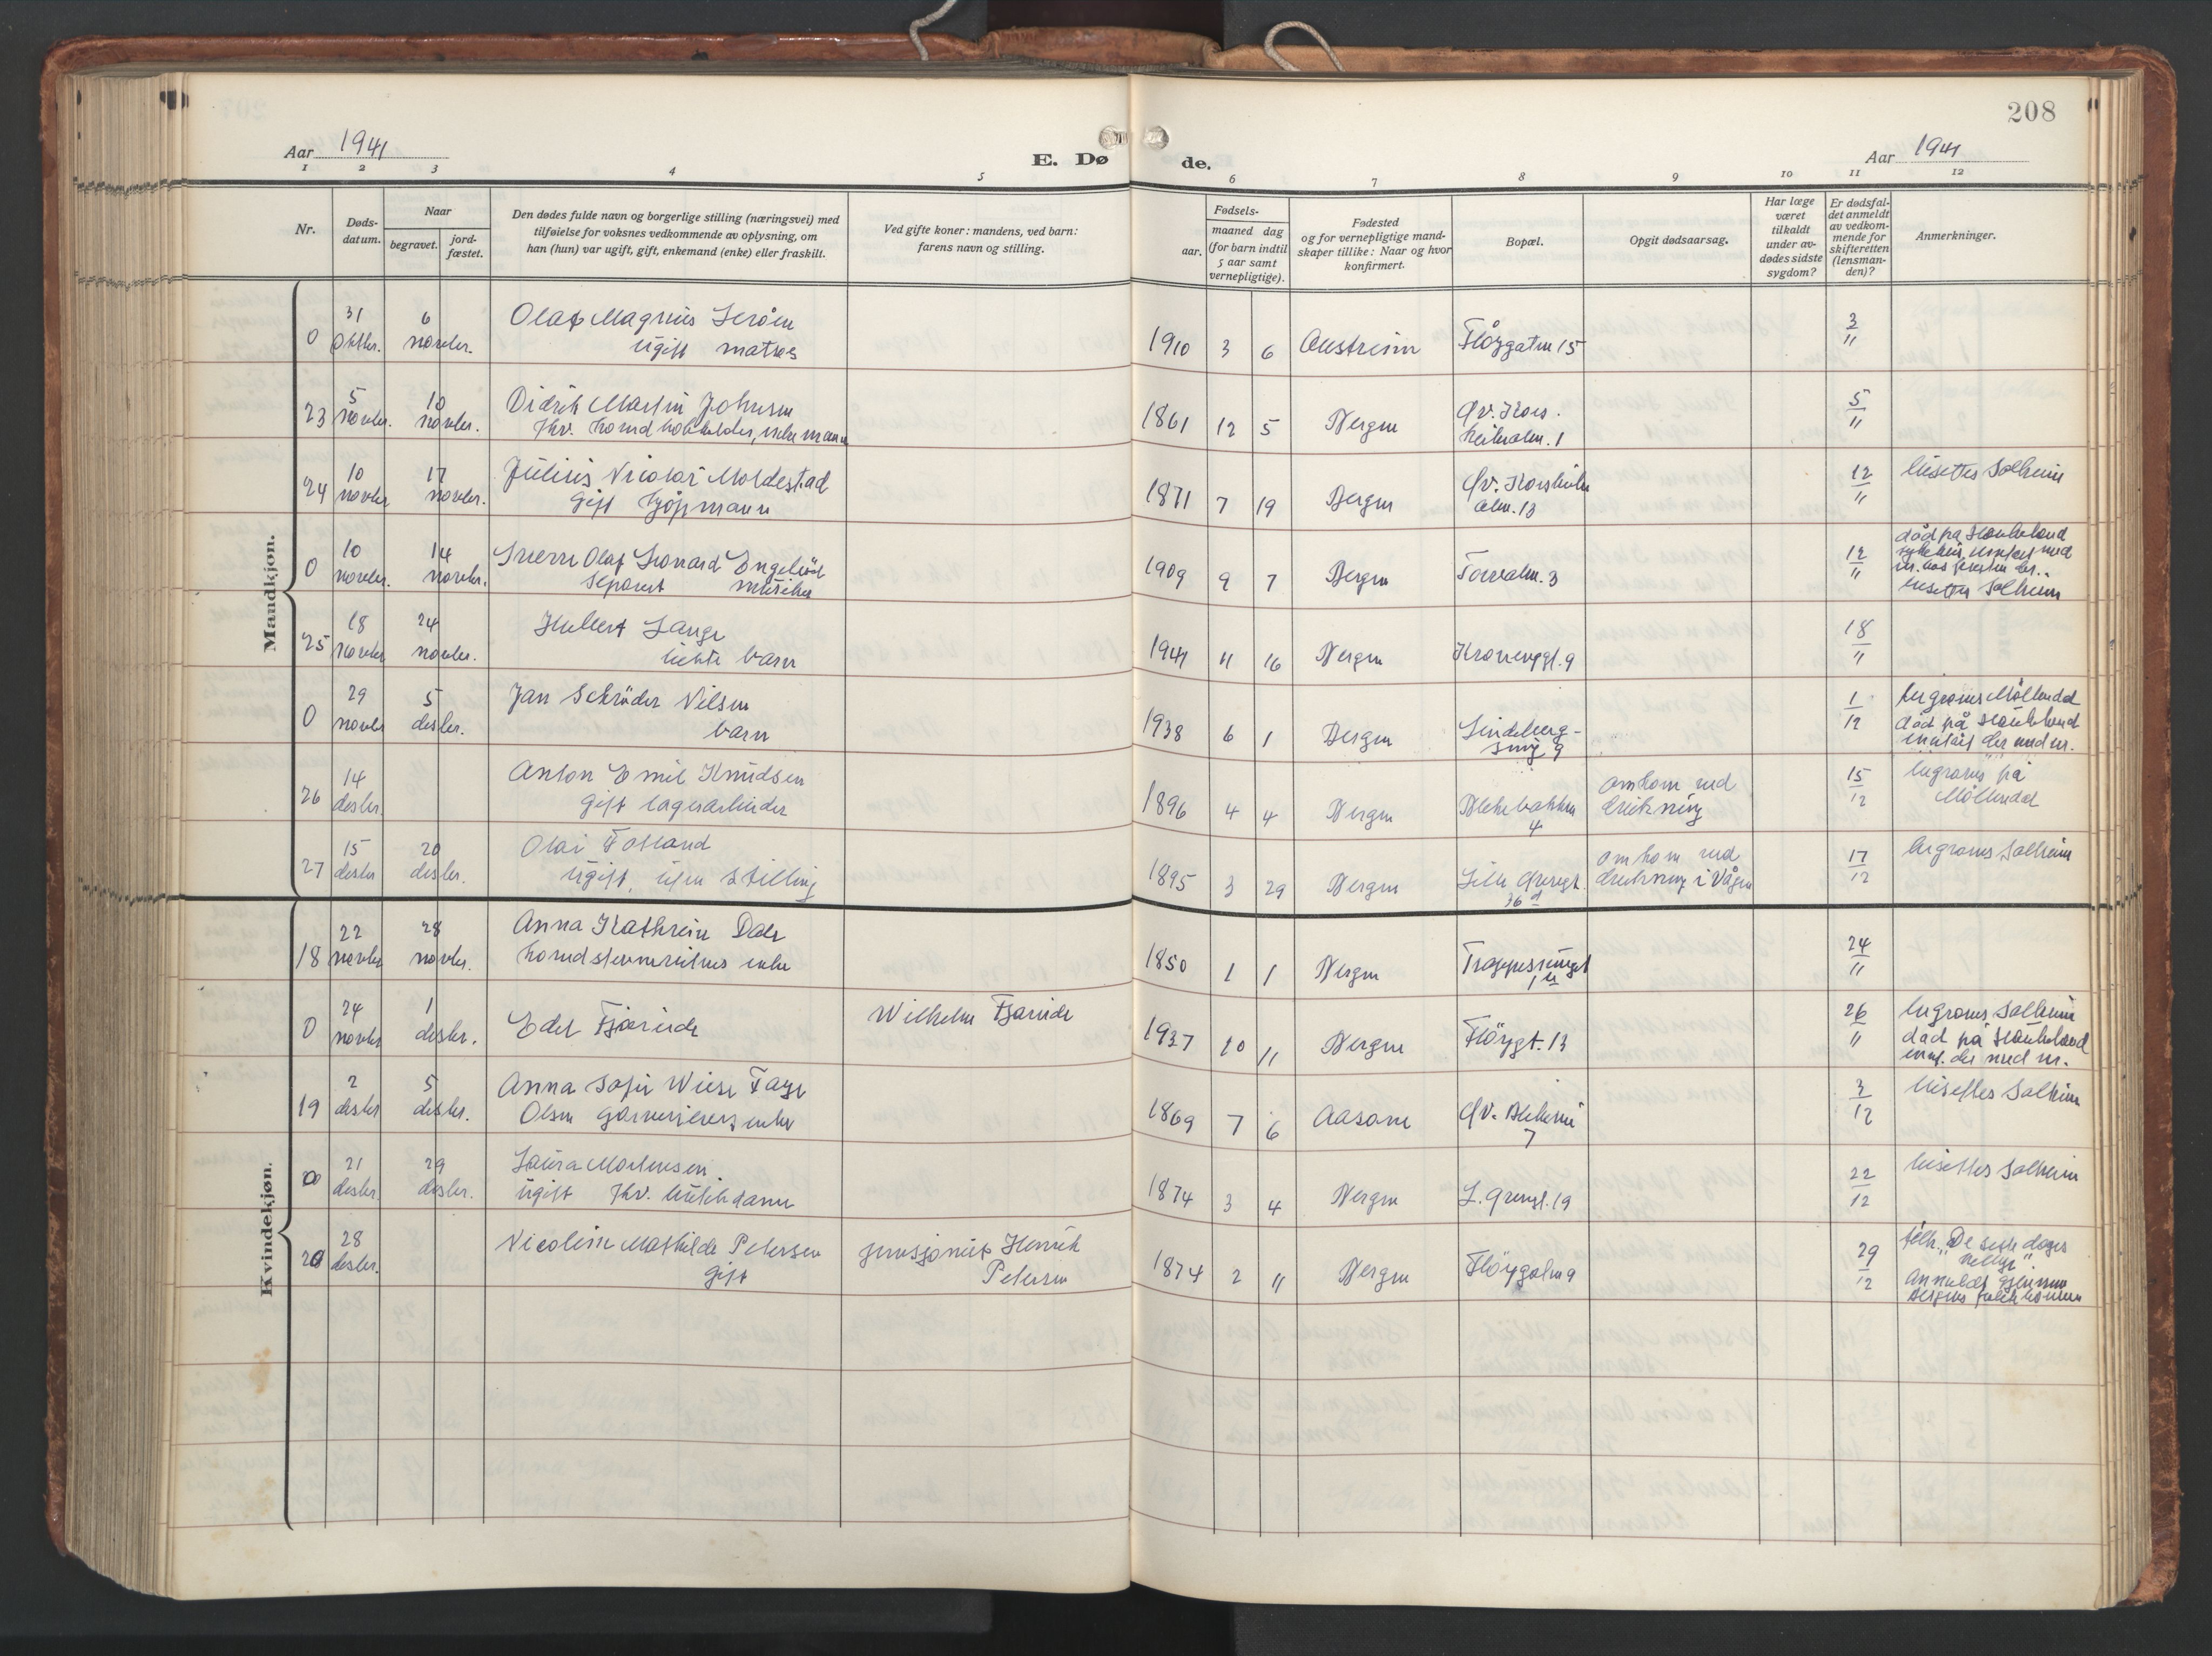 208
Aar 1941
E. Dø
de.
Aar 1941
1 2 3 4 5 6 7 8 9 10 11 12
Nr.
Døds-
datum.
Naar
begravet.
jord-
fæstet.
Den dødes fulde navn og borgerlige stilling (næringsvei) med
tilføielse for voksnes vedkommende av oplysning, om
han (hun) var ugift, gift, enkemand (enke) eller fraskilt.
Ved gifte koner: mandens, ved barn:
farens navn og stilling.
Fødsels-
aar.
maaned dag
(for barn indtil
5 aar samt
vernepligtige).
Fødested
og for vernepligtige mand-
skaper tillike: Naar og hvor
konfirmert.
Bopæl.
Opgit dødsaarsag.
Har læge
været
tilkaldt
under av-
dødes sidste
sygdom?
Er dødsfal-
det anmeldt
av vedkom-
mende for
skifteretten
(lensman-
den)?
Anmerkninger.
Mandkjøn.
0 31 oktbr. 6 novbr. Olaf Magnus
ugift matros
1910 3 6 Austreim Fløygaten 15 3/11
23 5 novbr. 10 novbr. Didrik Martin Johnsen
fhv. enkemann
1861 12 5 Bergen 5/11
24 10 novbr. 17 novbr. Julius Nicolai Moldestad
gift kjøpmann
1871 7 19 Bergen
alm. 13 12/11 bisettes Solheim
0 10 novbr. 14 novbr. Sverre Olaf Leonard
separert musiker
1909 9 7 Bergen Torvalm. 3 12/11
død på Haukeland
bisettes Solheim
25 18 novbr. 24 novbr. Hubert Lange
ekte barn
1941 11 16 Bergen 18/11
0 29 novbr. 5 desbr. Jan Schrøder Nilsen
barn
1938 6 1 Bergen Lindeberg-
smug 9 1/12
begraves Møllendal
død på Haukeland
innført der med nr.
26 14 desbr. Anton Emil Knudsen
gift lagerarbeider
1896 4 4 Bergen Blekebakken
4
omkom ved
drukning
15/12 begraves på
Møllendal
27 15 desbr. 20 desbr. Olai Folland
ugift, uten stilling
1895 3 29 Bergen Lille Øvregt.
36
omkom ved
drukning i Vågen
17/12 begraves Solheim
Kvindekjøn.
18 22 novbr. 28 novbr. Anna Kathrine Dale
enke
1850 1 1 Bergen 24/11
0 24 novbr. 1 desbr. Edel Fjæride
Wilhelm Fjæride
1937 10 11 Bergen Fløygt. 13 26/11
begraves Solheim
død på Haukeland
innf. der med nr.
19 2 desbr. 5 desbr. Anna Sofie Wiese Faye
Olsen enke
1869 7 6 Aasane
7 3/12 bisettes Solheim
0 21 desbr. 29 desbr. Laura Martensen
ugift fhv. butikdame
1874 3 4 Bergen L. Øvregt. 19 22/12 bisettes Solheim
20 28 desbr. Nicoline Mathilde Petersen
gift
pensjonist Henrik
Petersen
1874 2 11 Bergen Fløygaten 9 29/12
tilh. "De siste dages
hellige".
Anmeldt gjennem
Bergens politikammer